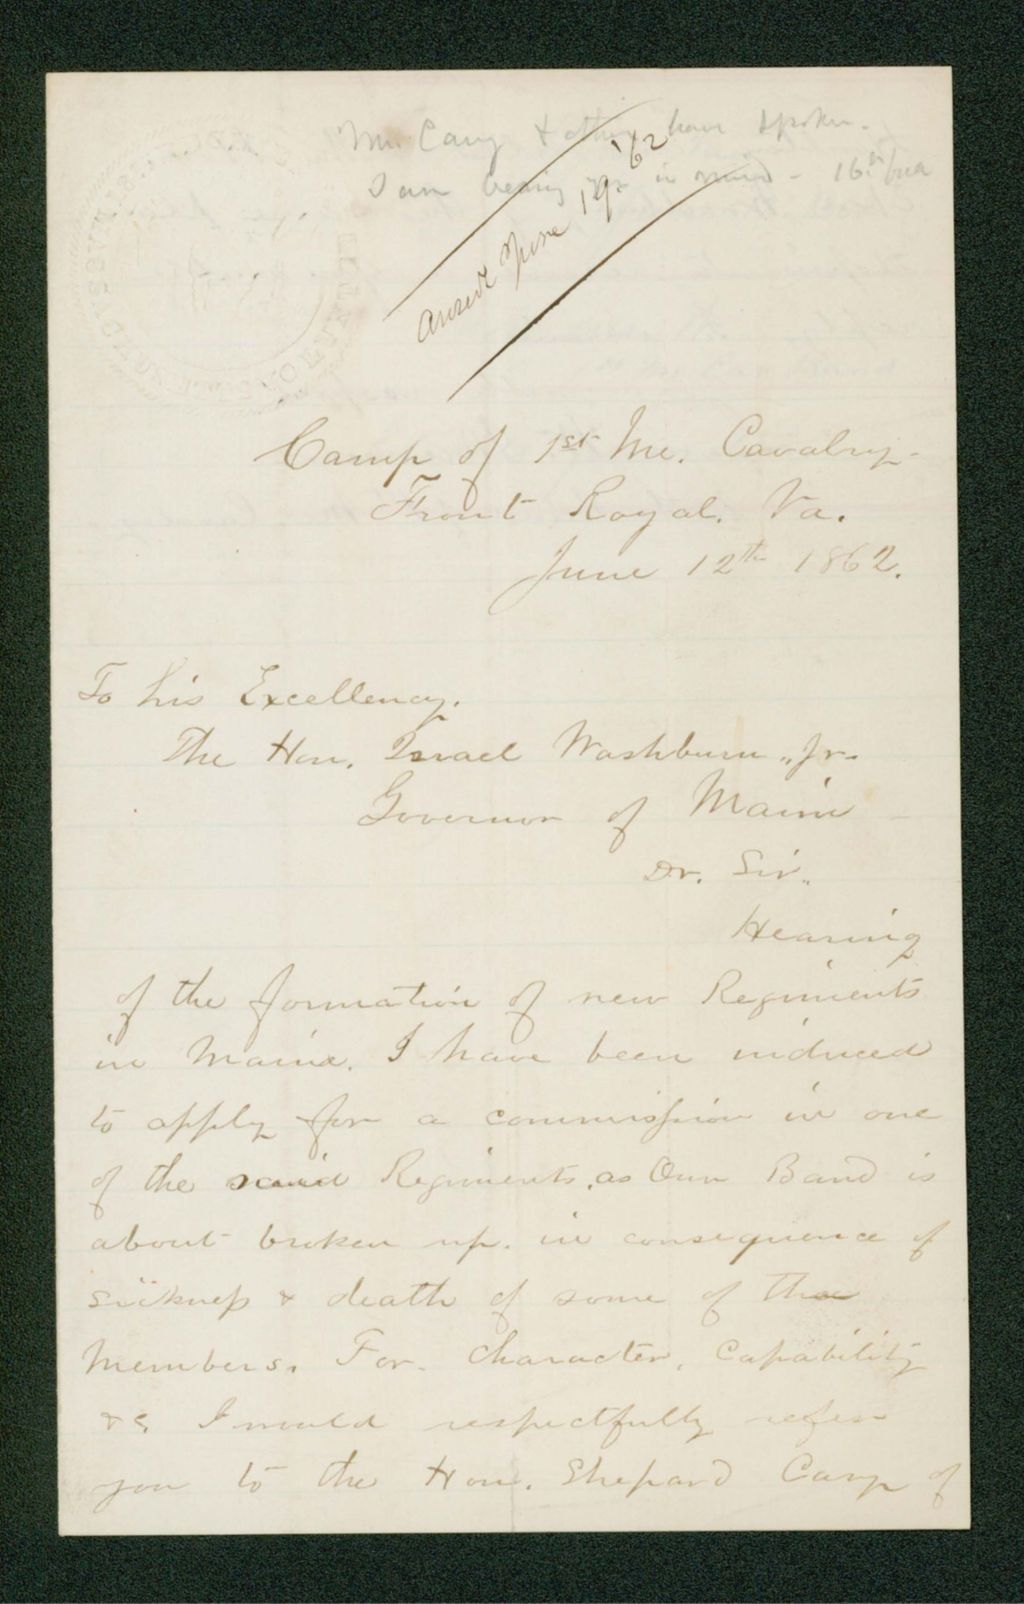 Mr Cary & others have spoken.
I am bearing you in mind - 16th
Ansd June 19, '62
Camp of 1st Me. Cavalry-
Front Royal. Va.
June 12th 1862.
To his Excellency.
The Hon. Israel Washburn,, Jr.
Governor of Maine
Dr. Sir,,
Hearing
of the formation of new Regiments
in Maine. I have been induced
to apply for a commission in one
of the said Regiments, as Our Band is
about broken up. in consequence of
sickness & death of some of the
Members. For. Character, Capability
&c, I would respectfully refer
you to the Hon. Shepard Cary of